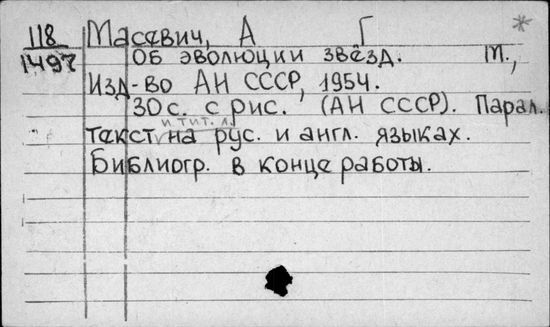 118 Масевич, А Г *
1497 Об эволюции звёзд. М.,
Изд-во АН СССР, 1954.
30 с. с рис. (АН СССР). Парал.
и тит. л.
текст на рус. и англ. языках.
Библиогр. в конце работы.